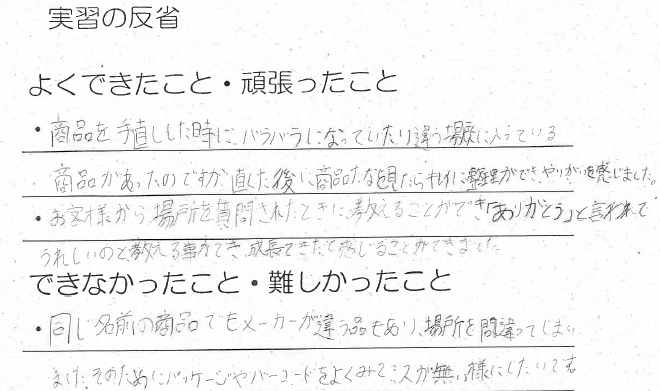 実習の反省
よくできたこと・頑張ったこと
・商品を手直しした時に、バラバラになっていたり違う場所に入っている
商品があったのですが直した後に商品たなを見たらキレイに整理ができ、やりがいを感じました。
・お客様から、場所を質問されたときに、教えることができ「ありがとう」と言われて
うれしいのと教える事ができ、成長できたと感じることができました
できなかったこと・難しかったこと
・同じ名前の商品でもメーカーが違う品もあり、場所を間違ってしまい
ました、そのためにパッケージやバーコードをよくみてミスが無い様にしたいです